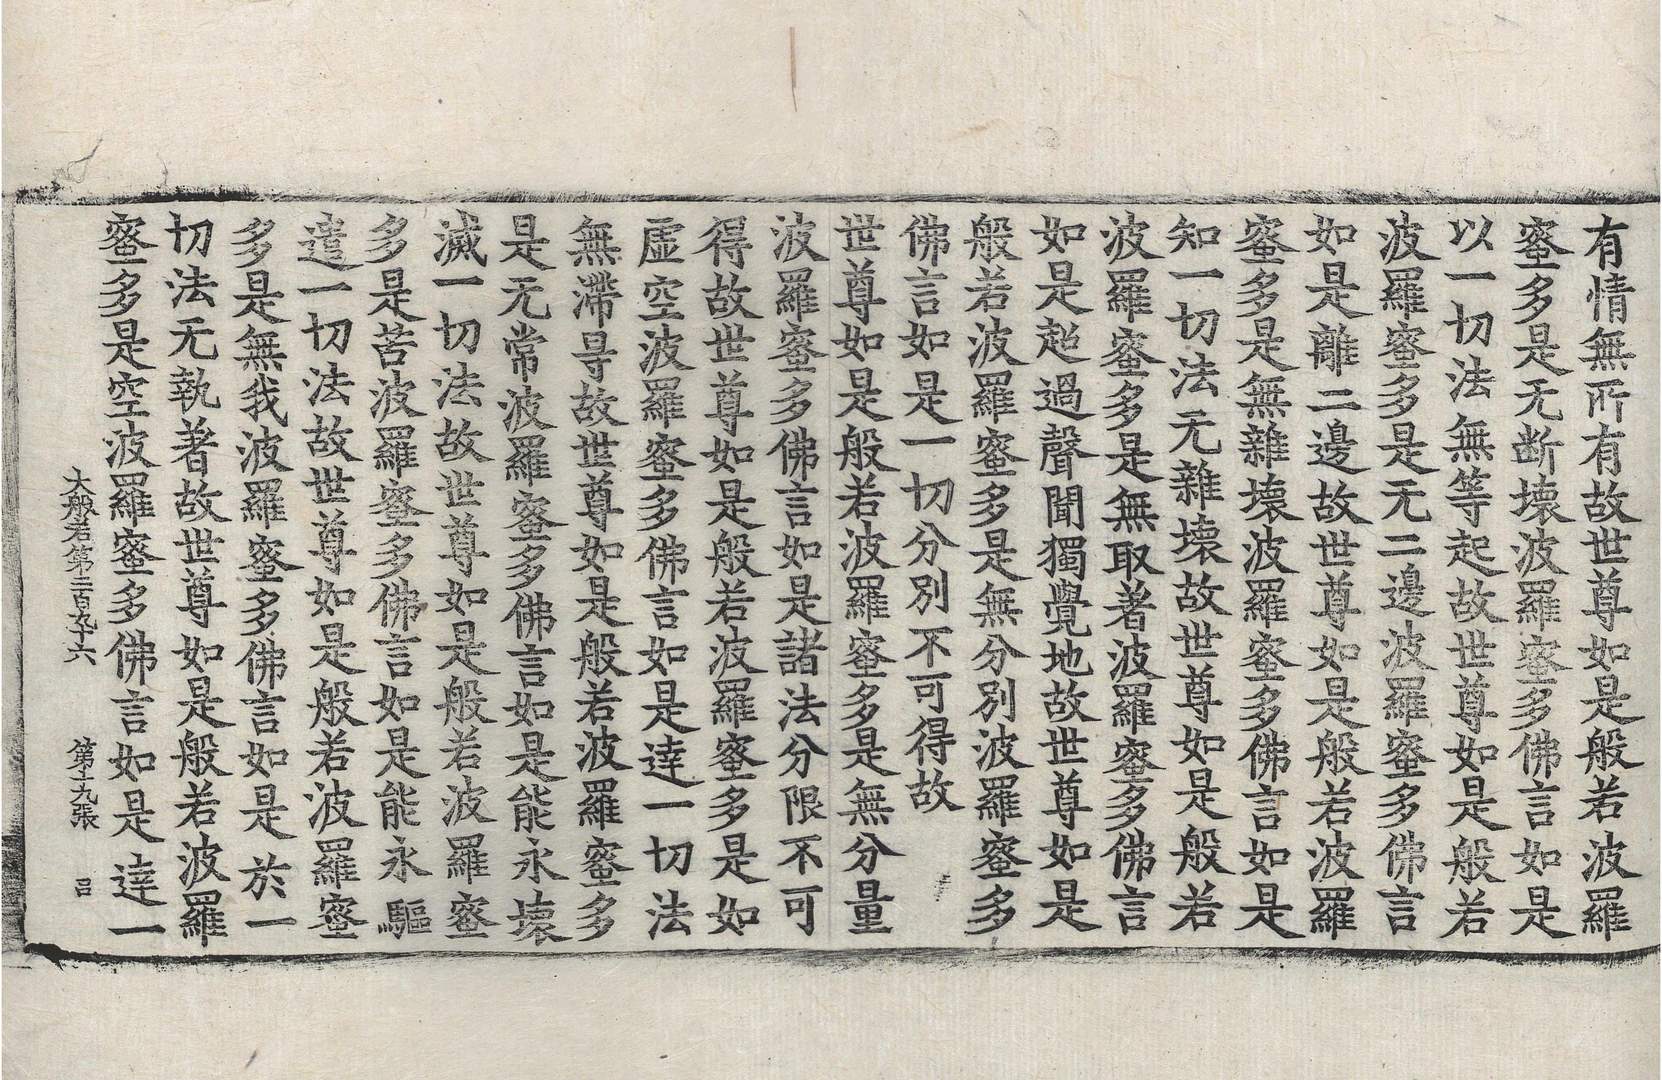 有情無所有故世尊如是般若波羅
蜜多是无断壊波羅蜜多佛言如是
以一切法無等起故世尊如是般若
波羅蜜多是无二邊波羅蜜多佛言
如是離二邊故世尊如是般若波羅
蜜多是無雜壊波羅蜜多佛言如是
知一切法无雜壊故世尊如是般若
波羅蜜多是無取著波羅蜜多佛言
如是超過聲聞獨覺地故世尊如是
般若波羅蜜多是無分別波羅蜜多
佛言如是一切分別不可得故
世尊如是般若波羅蜜多是無分量
波羅蜜多佛言如是諸法分限不可
得故世尊如是般若波羅蜜多是如
虛空波羅蜜多佛言如是達一切法
無滯㝵故世尊如是般若波羅蜜多
是无常波羅蜜多佛言如是能永壊
滅一切法故世尊如是般若波羅蜜
多是苦波羅蜜多佛言如是能永驅
遣一切法故世尊如是般若波羅蜜
多是無我波羅蜜多佛言如是於一
切法无執著故世尊如是般若波羅
蜜多是空波羅蜜多佛言如是達一
大般若第二百九十六 第十九張 吕